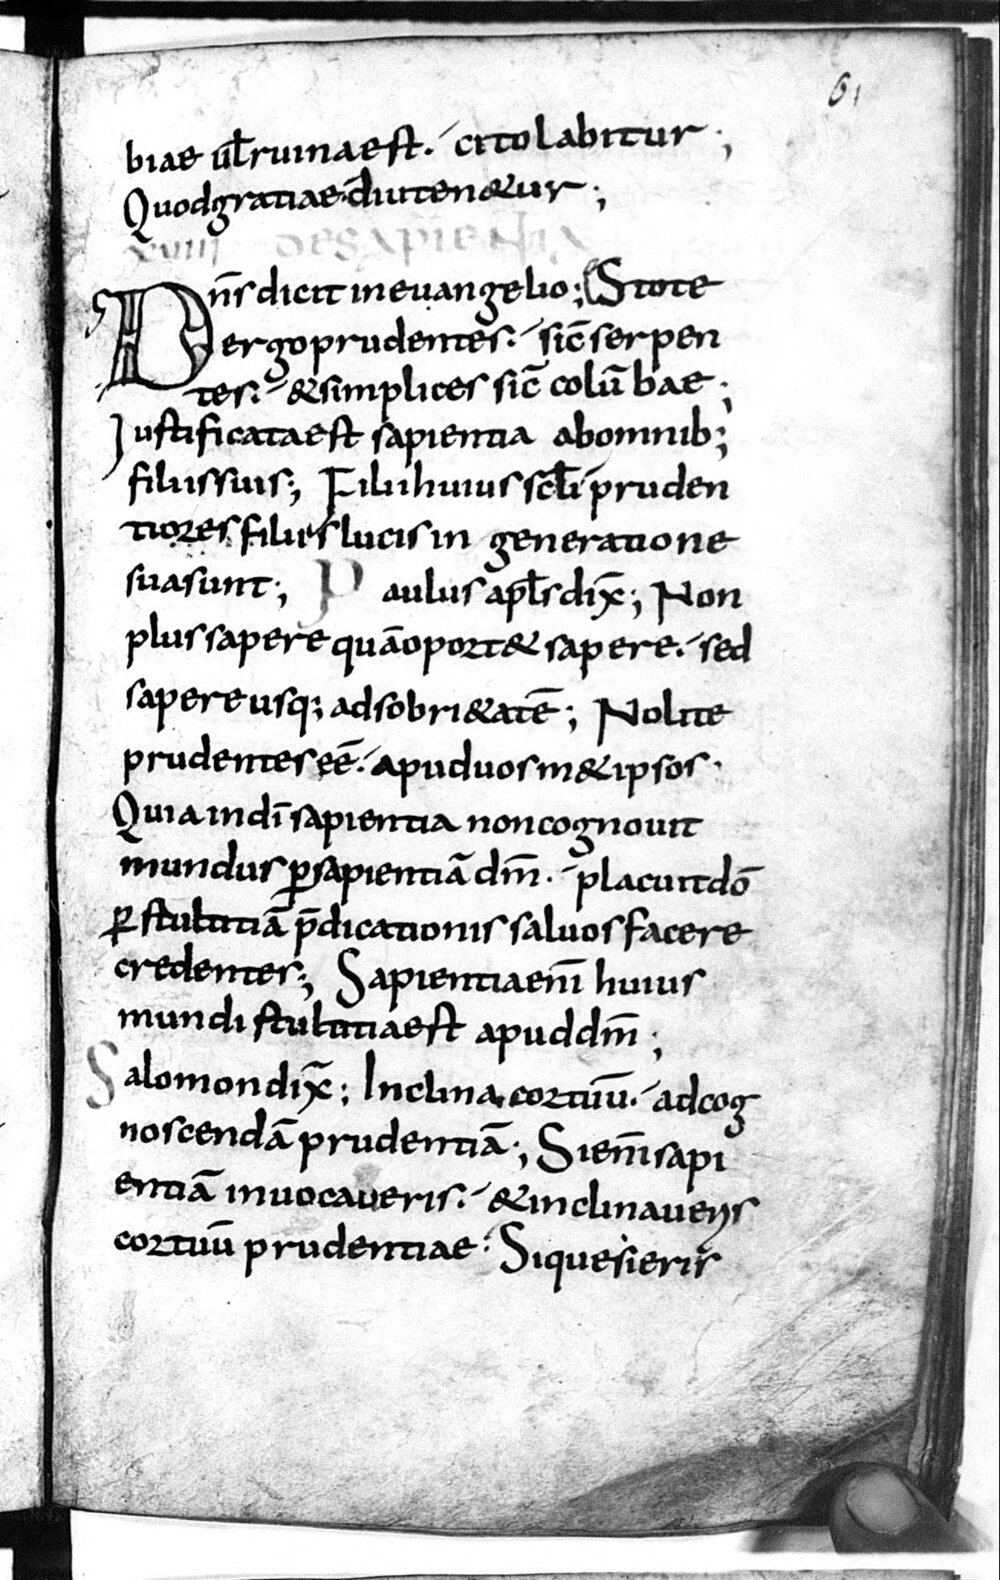 61
biae ul̄ ruina est. cito labitur;
Quod gratiae diu tenetur;
xviiii DE SAPIENTIA
Dn̄s dicit in euangelio; Stote
ergo prudentes. sic̄ serpen
tes. & simplices sic̄ colū bae;
Iustificata est sapientia ab omnib;
filiis suis; Filii huius scl̄i pruden
tiores filiis lucis in generatione
sua sunt; Paulus apl̄s dix̄; Non
plus sapere quā oport& sapere. sed
sapere usq; ad sobri&atē; Nolite
prudentes eē. apud uos m&ipsos.
Quia in dī sapientia non cognouit
mundus ꝑ sapientiā dm̄. placuit dō
ꝑ stultitiā p̄dicationis saluos facere
credentes; Sapientia enī huius
mundi stultitia est apud dm̄;
Salomon dix̄; Inclina cor tuū. ad cog
noscendā prudentiā; Si enī sapi
entiā inuocaueris. & inclinaueris
cor tuū prudentiae. Si quesieris